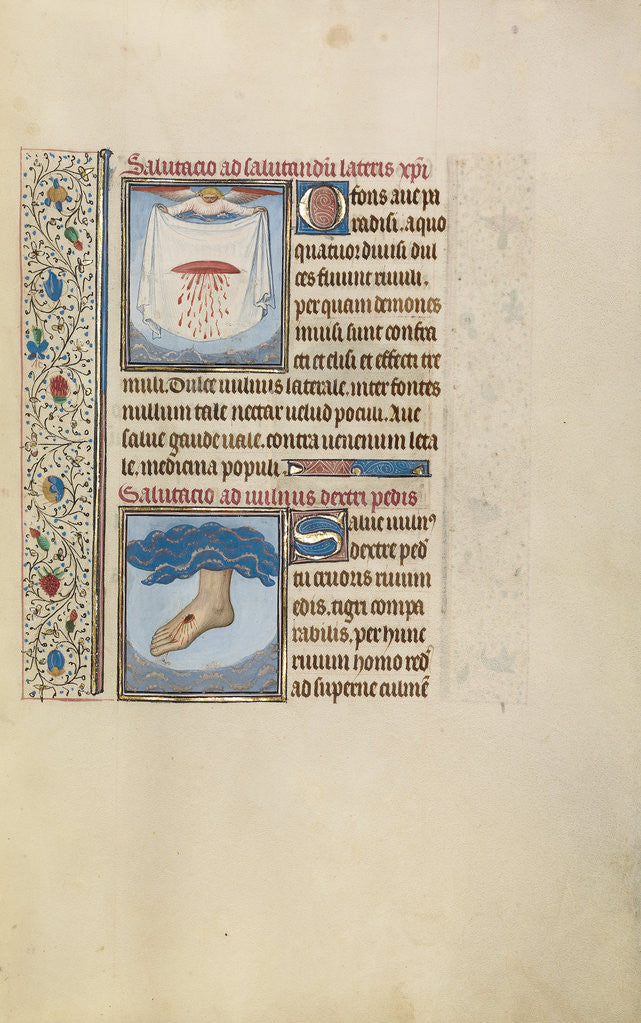 Salutacio ad salutandū lateris xpī
O fons aue pa
radisi. a quo
quatuor diuisi dul
ces fluunt riuuli.
per quam demones
inuisi sunt confra
cti et elisi et effecti tre
muli. Dulce uulnus laterale. inter fontes
nullum tale nectar uelud poculi. Aue
salue gaude uale. contra uenenum leta
le. medicina populi.
Salutacio ad uulnus dextri pedis
Salue uulnꝰ
dextre ped
tu cruoris riuum
edis. tigri compa
rabilis. per hunc
riuum homo red
ad superne culmē